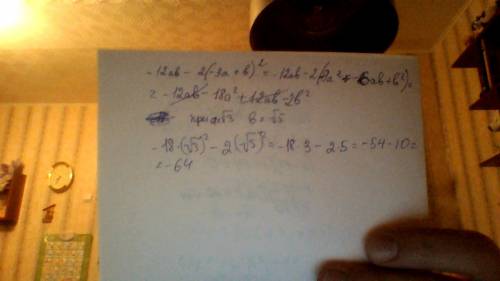 -12ab - 2(-3a+b)² = -12ab - 2(9a² - 6ab + b²) =
= -12ab - 18a² + 12ab - 2b²
при a=√3 b = √5
-18·(√3)² - 2(√5)² = -18·3 - 2·5 = -54 - 10 =
= -64